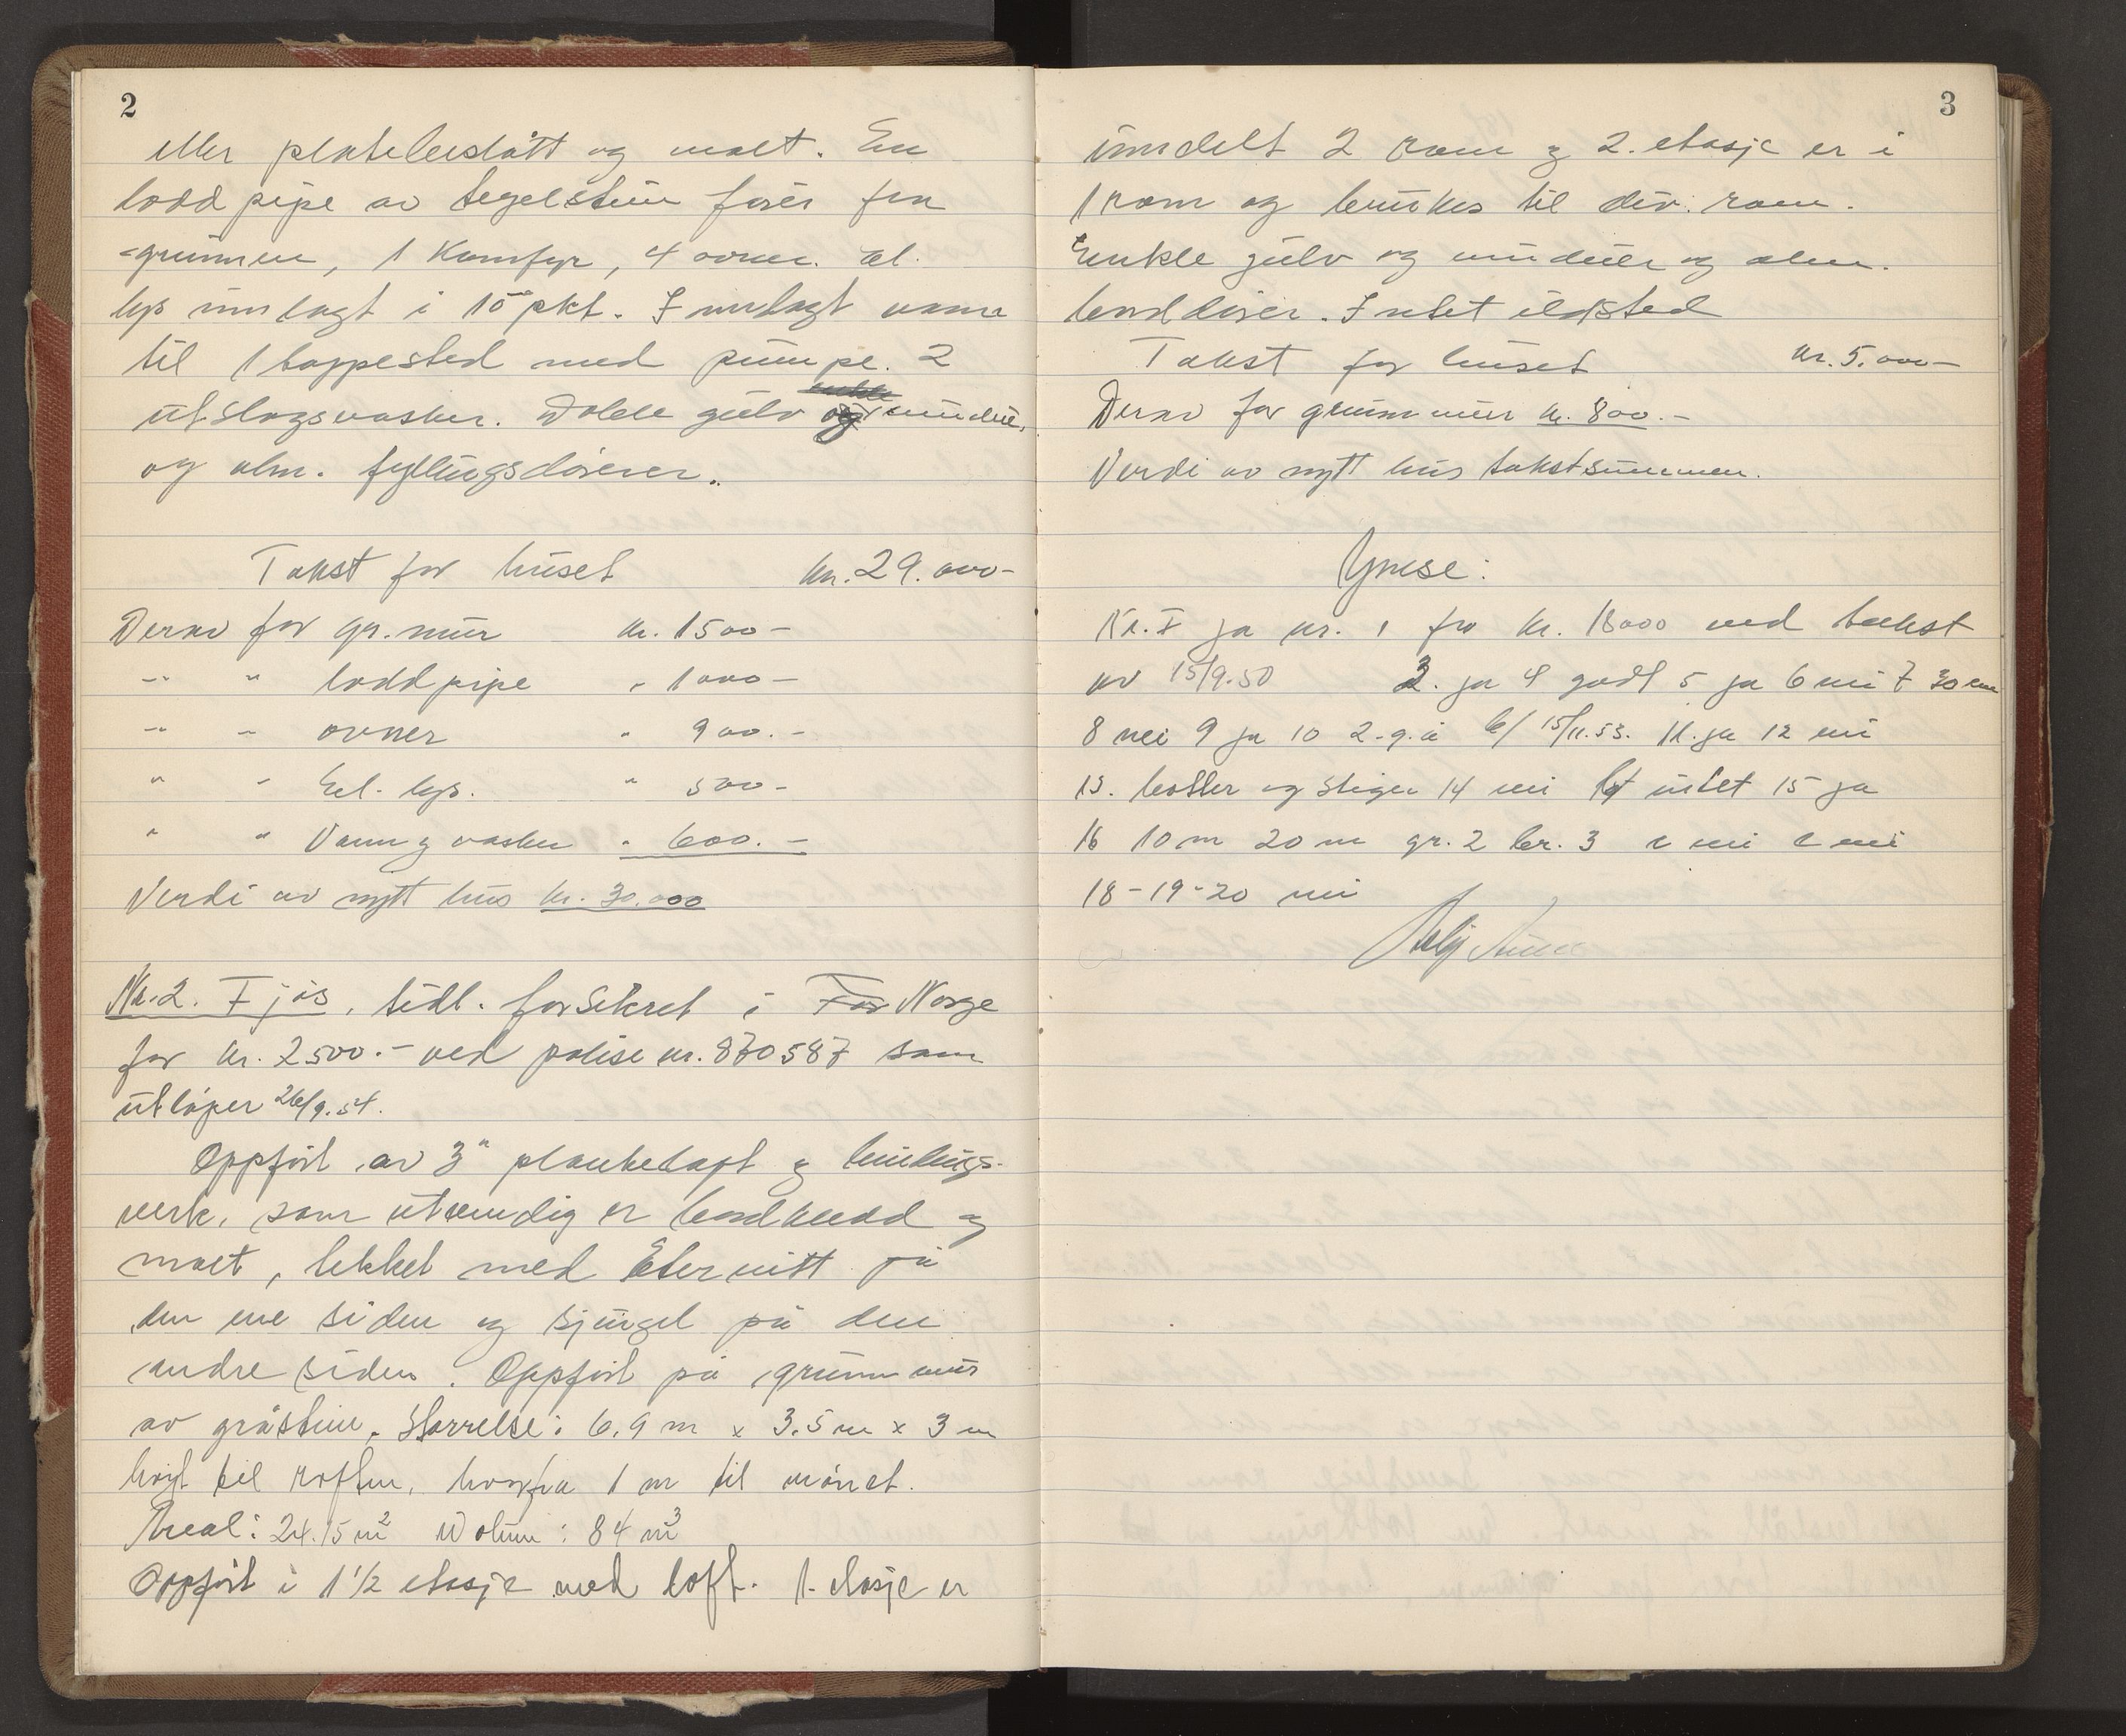 2
eller platekledått og malt. En
lodd pipe av tegelstein fører fra
grunnen, 1 Komfyr, 4 ovner. El.
lys innlagt i 15 pkt. Innlagt vann
til 1 tappested med pumpe. 2
utslagsvasker. Doble gulv og vinduer,
og alm. fyllingsdører.
Takst for huset kr. 29.000-
Derav for gr. mur kr. 1500-
-"- " lodd pipe " 1000-
-"- " ovner " 900.-
" " El. lys. " 500-
" " Vann g vasker " 600.-
Verdi av nytt hus kr. 30.000
Nr. 2. Fjøs, tidl. forsikret i For Norge
for kr. 2500.- ved polise nr. 870587 som
utløper 26/9.54.
Oppført av 3" plankelaft g bindings-
verk, som utvendig er bordkledd og
malt, tekket med Eternitt på
den ene siden og sjingel på den
andre siden. Oppført på grunnmur
av gråstein. Størrelse: 6.9 m x 3.5 m x 3 m
høyt til raften, hvorfra 1 m til mønet.
Areal: 24.15 m2 Volum: 84 m3
Oppført i 1 1/2 etasje med loft. 1. etasje er
3
inndelt 2 rom g 2. etasje er i
1 rom og brukes til div. rom.
Enkle gulv og vinduer og alm.
borddører. Intet ildsted
Takst for huset kr. 5.000-
Derav for grunnmur kr. 800.-
Verdi av nytt hus takstsummen.
Nr. I ja nr. 1 fra kr. 18000 ved takst
av 15/9.50 3. ja 4 godt 5 ja 6 nei 7 30 cm
8 nei 9 ja 10 2-g.å b/ 15/11.53. 11. ja 12 nei
13. bøtter og stiger 14 nei intet 15 ja
16 10 m 20 m gr. 2 br. 3 c nei c nei
18-19-20 nei